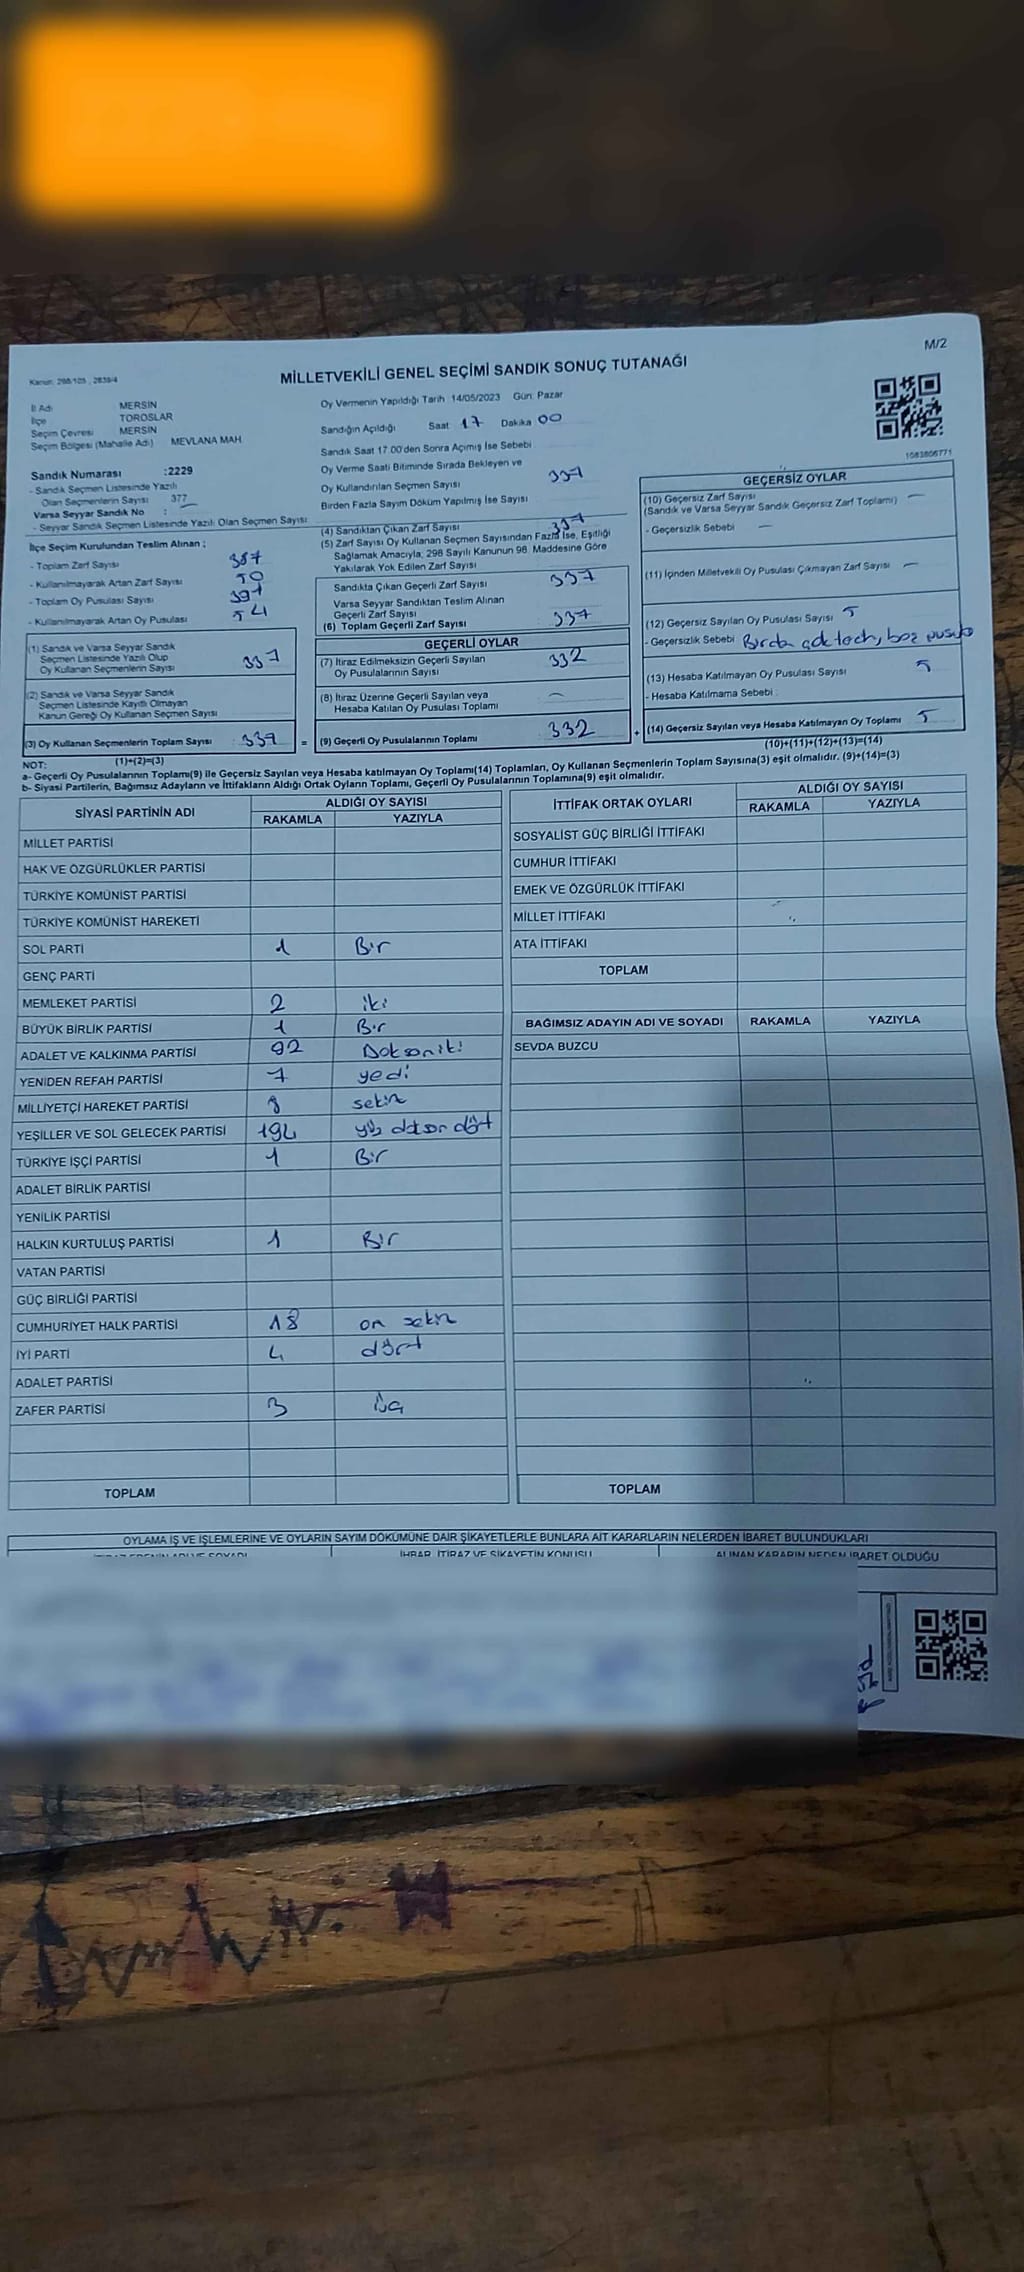 M/2
Kanun: 298/105 , 2839/4
MİLLETVEKİLİ GENEL SEÇİMİ SANDIK SONUÇ TUTANAĞI
İl Adı MERSİN
İlçe TOROSLAR
Seçim Çevresi MERSİN
Seçim Bölgesi (Mahalle Adı) MEVLANA MAH.
Sandık Numarası :2229
- Sandık Seçmen Listesinde Yazılı
Olan Seçmenlerin Sayısı 377
Varsa Seyyar Sandık No :
- Seyyar Sandık Seçmen Listesinde Yazılı Olan Seçmen Sayısı
Oy Vermenin Yapıldığı Tarih :14/05/2023 Gün: Pazar
Sandığın Açıldığı Saat 17 Dakika 00
Sandık Saat 17.00'den Sonra Açımış İse Sebebi
Oy Verme Saati Bitiminde Sırada Bekleyen ve
Oy Kullandırılan Seçmen Sayısı 337
Birden Fazla Sayım Döküm Yapılmış İse Sayısı
1083806771
İlçe Seçim Kurulundan Teslim Alınan ;
- Toplam Zarf Sayısı 387
- Kullanılmayarak Artan Zarf Sayısı 50
- Toplam Oy Pusulası Sayısı 391
- Kullanılmayarak Artan Oy Pusulası 54
(1) Sandık ve Varsa Seyyar Sandık
Seçmen Listesinde Yazılı Olup
Oy Kullanan Seçmenlerin Sayısı 337
(2) Sandık ve Varsa Seyyar Sandık
Seçmen Listesinde Kayıtlı Olmayan
Kanun Gereği Oy Kullanan Seçmen Sayısı
(3) Oy Kullanan Seçmenlerin Toplam Sayısı : 337 =
(1)+(2)=(3)
(4) Sandıktan Çıkan Zarf Sayısı 337
(5) Zarf Sayısı Oy Kullanan Seçmen Sayısından Fazla İse, Eşitliği
Sağlamak Amacıyla; 298 Sayılı Kanunun 98. Maddesine Göre
Yakılarak Yok Edilen Zarf Sayısı
Sandıkta Çıkan Geçerli Zarf Sayısı 337
Varsa Seyyar Sandıktan Teslim Alınan
Geçerli Zarf Sayısı
(6) Toplam Geçerli Zarf Sayısı : 337
GEÇERLİ OYLAR
(7) İtiraz Edilmeksizin Geçerli Sayılan
Oy Pusulalarının Sayısı 332
(8) İtiraz Üzerine Geçerli Sayılan veya
Hesaba Katılan Oy Pusulası Toplamı —
(9) Geçerli Oy Pusulalarının Toplamı : 332 +
GEÇERSİZ OYLAR
(10) Geçersiz Zarf Sayısı
(Sandık ve Varsa Seyyar Sandık Geçersiz Zarf Toplamı) —
- Geçersizlik Sebebi —
(11) İçinden Milletvekili Oy Pusulası Çıkmayan Zarf Sayısı —
(12) Geçersiz Sayılan Oy Pusulası Sayısı 5
- Geçersizlik Sebebi boş
(13) Hesaba Katılmayan Oy Pusulası Sayısı 5
- Hesaba Katılmama Sebebi :
(14) Geçersiz Sayılan veya Hesaba Katılmayan Oy Toplamı 5
(10)+(11)+(12)+(13)=(14)
NOT:
a- Geçerli Oy Pusulalarının Toplamı(9) ile Geçersiz Sayılan veya Hesaba katılmayan Oy Toplamı(14) Toplamları, Oy Kullanan Seçmenlerin Toplam Sayısına(3) eşit olmalıdır. (9)+(14)=(3)
b- Siyasi Partilerin, Bağımsız Adayların ve İttifakların Aldığı Ortak Oyların Toplamı, Geçerli Oy Pusulalarının Toplamına(9) eşit olmalıdır.
SİYASİ PARTİNİN ADI ALDIĞI OY SAYISI
RAKAMLA YAZIYLA
MİLLET PARTİSİ
HAK VE ÖZGÜRLÜKLER PARTİSİ
TÜRKİYE KOMÜNİST PARTİSİ
TÜRKİYE KOMÜNİST HAREKETİ
SOL PARTİ 1 Bir
GENÇ PARTİ
MEMLEKET PARTİSİ 2 iki
BÜYÜK BİRLİK PARTİSİ 1 Bir
ADALET VE KALKINMA PARTİSİ 92 Doksaniki
YENİDEN REFAH PARTİSİ 7 yedi
MİLLİYETÇİ HAREKET PARTİSİ 8 sekiz
YEŞİLLER VE SOL GELECEK PARTİSİ 194 yüz doksan dört
TÜRKİYE İŞÇİ PARTİSİ 1 Bir
ADALET BİRLİK PARTİSİ
YENİLİK PARTİSİ
HALKIN KURTULUŞ PARTİSİ 1 Bir
VATAN PARTİSİ
GÜÇ BİRLİĞİ PARTİSİ
CUMHURİYET HALK PARTİSİ 18 on sekiz
İYİ PARTİ 4 dört
ADALET PARTİSİ
ZAFER PARTİSİ 3 üç
TOPLAM
İTTİFAK ORTAK OYLARI ALDIĞI OY SAYISI
RAKAMLA YAZIYLA
SOSYALİST GÜÇ BİRLİĞİ İTTİFAKI
CUMHUR İTTİFAKI
EMEK VE ÖZGÜRLÜK İTTİFAKI
MİLLET İTTİFAKI
ATA İTTİFAKI
TOPLAM
BAĞIMSIZ ADAYIN ADI VE SOYADI RAKAMLA YAZIYLA
SEVDA BUZCU
TOPLAM
OYLAMA İŞ VE İŞLEMLERİNE VE OYLARIN SAYIM DÖKÜMÜNE DAİR ŞİKAYETLERLE BUNLARA AİT KARARLARIN NELERDEN İBARET BULUNDUKLARI
İTİRAZ EDENİN ADI VE SOYADI İHBAR, İTİRAZ VE ŞİKAYETİN KONUSU ALINAN KARARIN NEDEN İBARET OLDUĞU